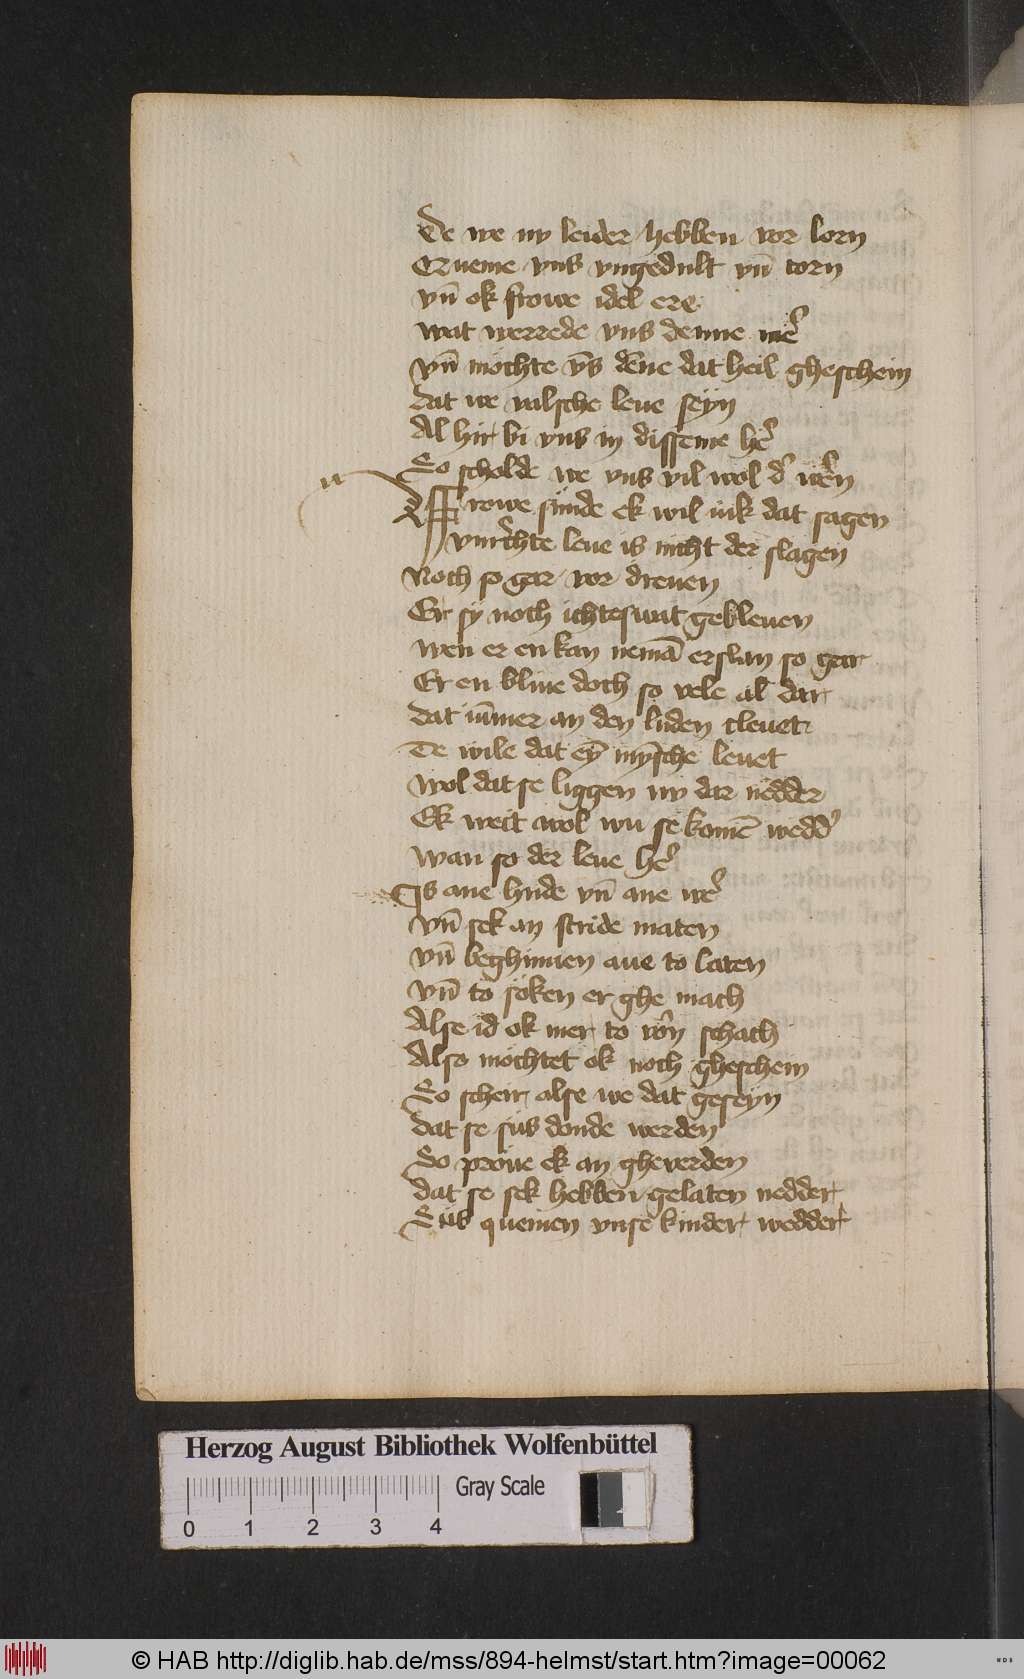 De we ny leider hebben vor lorn
Erneme vns vngedult vn̄ torn
vn̄ ok frowe idel ere
wat werrede vns denne me᷑
vn̄ mochte vn̄s dēne dat heil gheschein
dat we valsche leue seyn
Al hir bi vns in disseme he᷑
So scholde we vns vil wol d᷑ we᷑n
Vrowe sunde ek wil iuk dat sagen
vnrechte leue is nicht der slagen
Noch so gar vor dreuen
Er sy noch ichteswat gebleuen
wen er en kan nemā erslan so gar
Er en bliue doch so vele al dar
dat iūmer an den luden cleuet
De wile dat eȳ mȳsche leuet
wol dat se liggen ny dar nedder
Ek weit wol wu se komē wedd᷑
wan so der leue he᷑
Is ane hude vn̄ ane we᷑
vn̄ sek an stride maten
vn̄ beghinnen aue to laten
vn̄ to soken er ghe mach
Alse id ok mer to vo᷑n schach
Also mochtet ok noch gheschein
So scheir alse we dat geseyn
dat se sus donde werden
So proue ek an gheverden
dat se sek hebben gelaten nedder
Sus quemen vnse kinder wedder
Herzog August Bibliothek Wolfenbüttel
Gray Scale
0 1 2 3 4
© HAB http://diglib.hab.de/mss/894-helmst/start.htm?image=00062